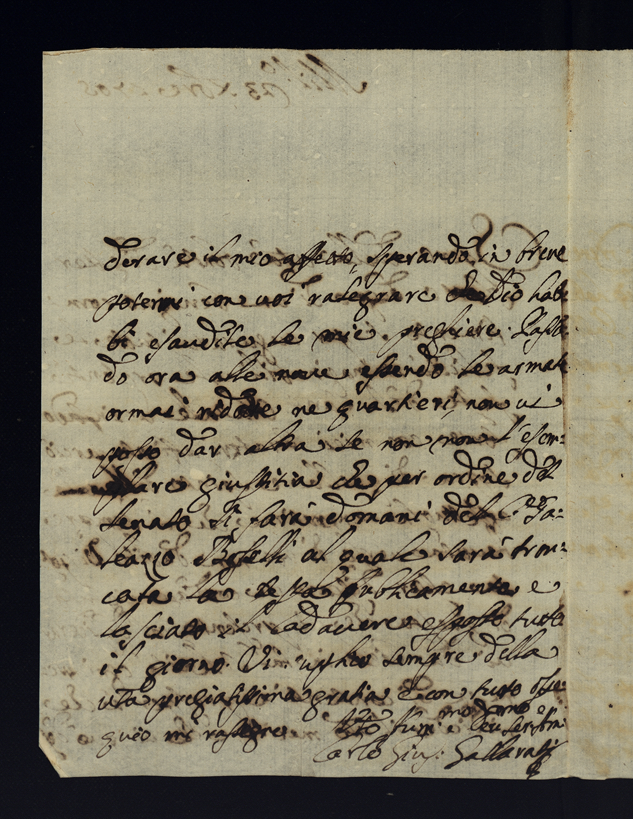 derare il mio affetto, sperando in breve
potermi con voi ralegrare che Dio hab-
bi esaudite le mie preghiere. Passan-
do ora alle nove essendo le armate
ormai ridotte ne quartieri, non vi
posso dar altra se non non l'esem-
plare giustitia che per ordine del
senato si farà domani del C. Ga-
leazo Boselli al quale sarà tron-
cata la testa publicamente e
lasciato il cadavere esposto tutto
il giorno. Vi suplico sempre della
vra pregiatissima gratia e con tutto osse
quio mi rasegno
Carlo Gius: Gallarati